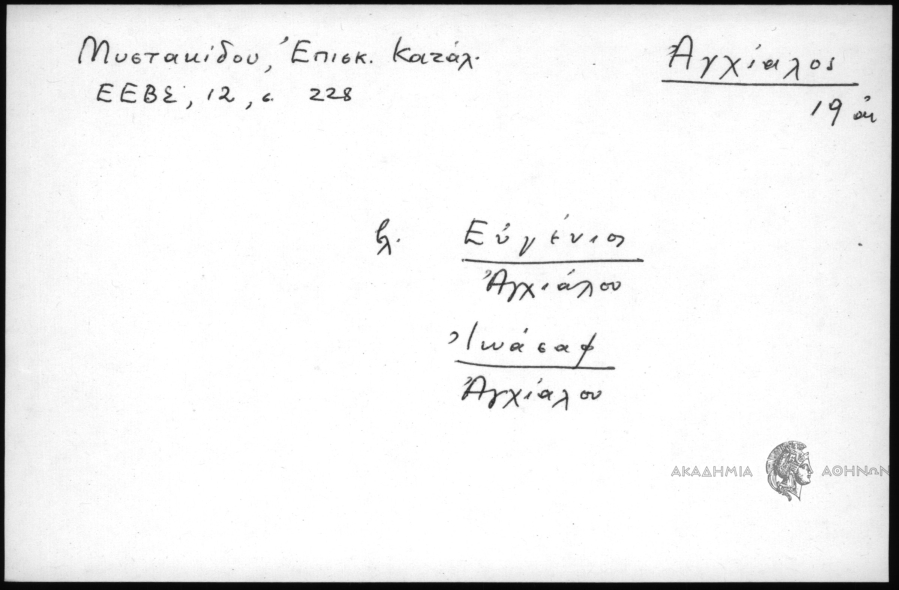 Μυστακίδου, Ἐπισκ. Κατάλ.
ΕΕΒΣ, 12, σ. 228
Ἀγχίαλος
19 αι
βλ. Εὐγένιος
Ἀγχιάλου
Ἰωάσαφ
Ἀγχιάλου
ΑΚΑΔΗΜΙΑ ΑΘΗΝΩΝ